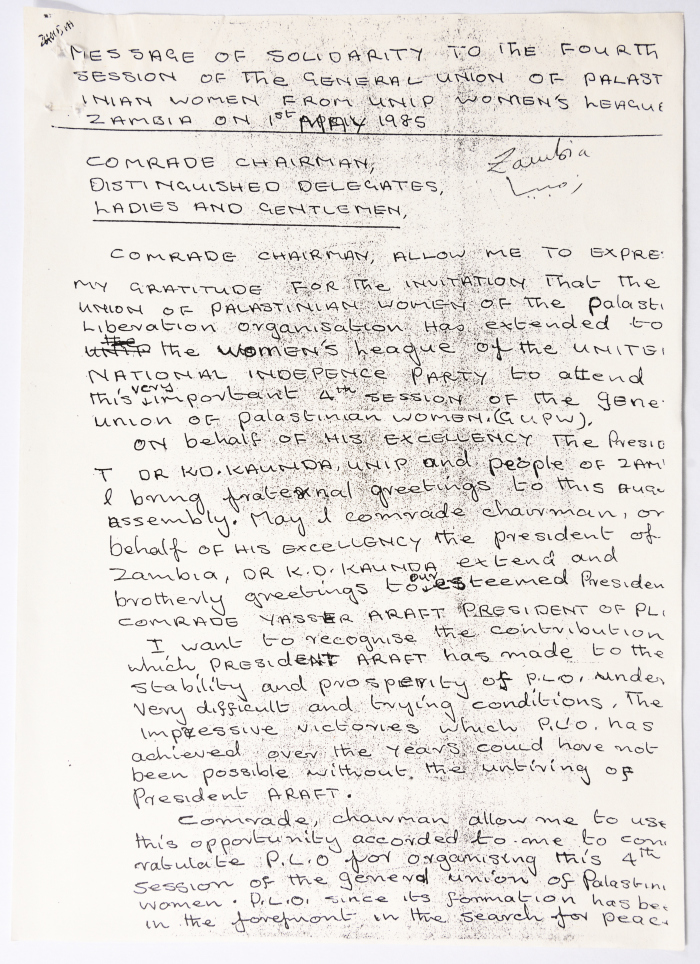 MESSAGE OF SOLIDARITY TO THE FOURTH
SESSION OF THE GENERAL UNION OF PALAST
INIAN WOMEN FROM UNIP WOMEN'S LEAGUE
ZAMBIA ON 1st 1985
COMRADE CHAIRMAN,
Zambia
زمبيا
DISTINGUISHED DELEGATES,
LADIES AND GENTLEMEN,
COMRADE CHAIRMAN, ALLOW ME TO EXPRE
MY GRATITUDE FOR THE INVITATION THAT THE
UNION OF PALASTINIAN WOMEN OF THE Palasti
Liberation organisation Has extended to
the WOMEN'S League of the UNITE
NATIONAL INDEPENCE PARTY to attend
this very important 4th SESSION OF the Gene
union of Palastinian women. (GUPW).
ON behalf OF HIS EXCELLENCY The Presid
T DR KD. KAUNDA, UNIP and people OF ZAM
I bring fraternal greetings to this Augu
Assembly. May I comrade chairman, on
behalf OF HIS EXCELLENCY the president of
Zambia, DR K.D. KAUNDA extend and
brotherly greetings to our esteemed Presiden
COMRADE YASSER ARAFT PRESIDENT OF PL
I want to recognise the contribution
which PRESIDENT ARAFT has made to the
stability and prosperity of P.L.O. under
very difficult and trying conditions. The
impressive victories which P.L.O. has
achieved over the years could have not
been possible without the untiring of
President ARAFT.
Comrade, chairman allow me to use
this opportunity accorded to me to con
ratulate P.L.O for organising this 4th
session of the general union of Palastini
women. P.L.O. since its formation has be
in the forefront in the search for peac